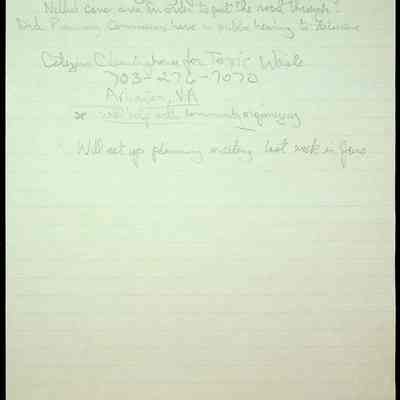 in order to put the road through?
Planning Commission have a public hearing to
Citizens Clearinghouse for Toxic Waste
703-276-7070
Arlington, VA
* will help with community organizing
Will set up planning meeting last week in June